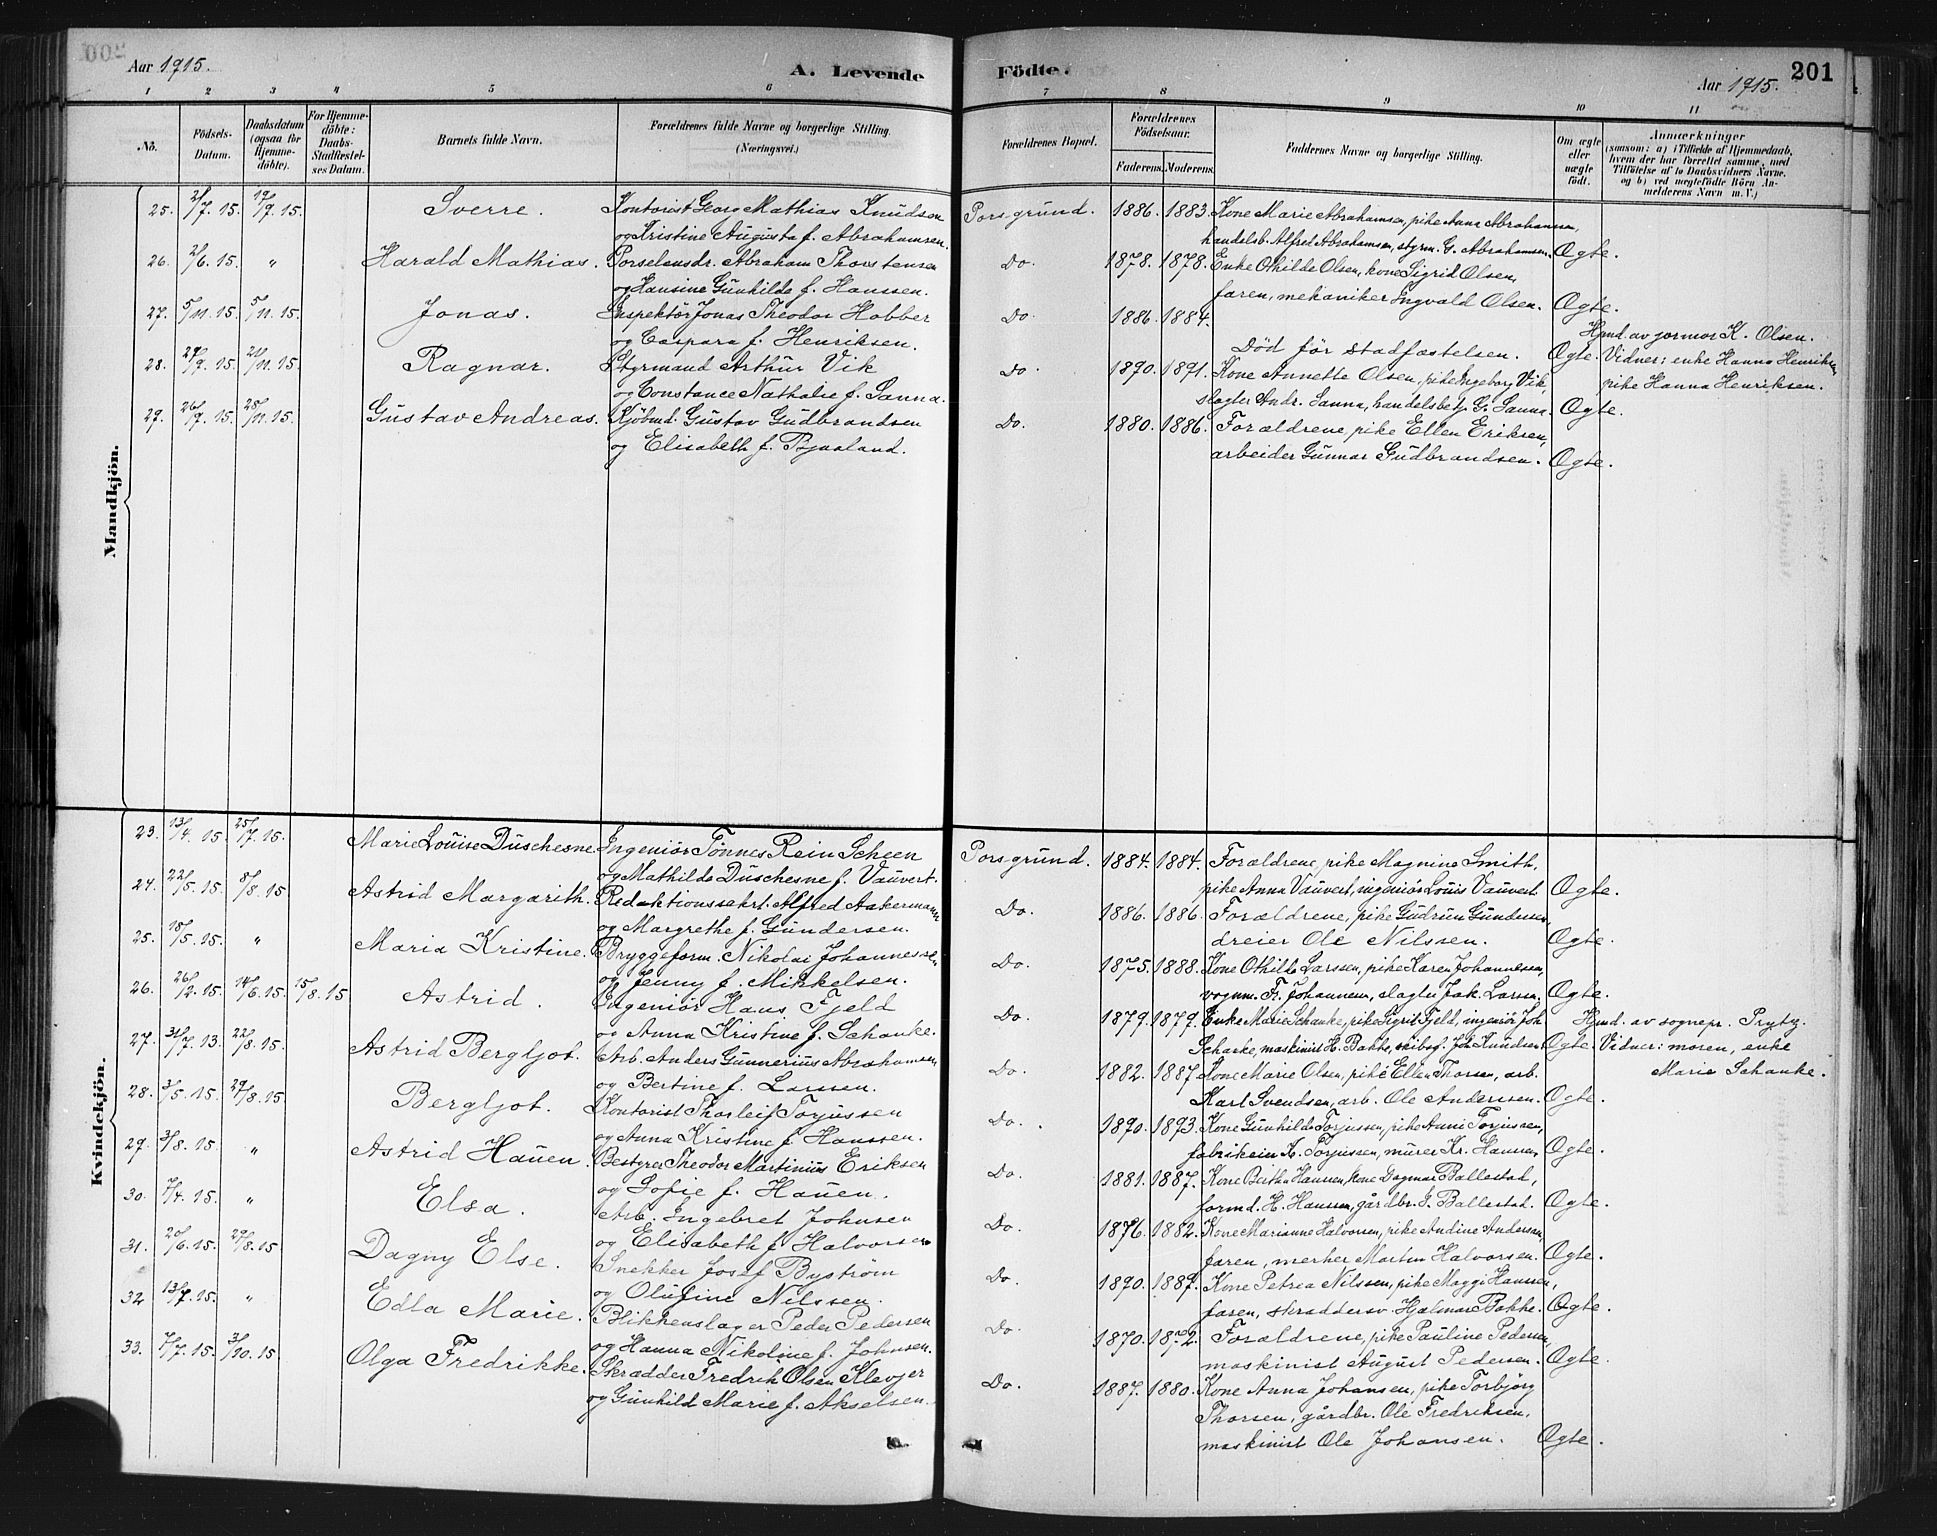 Aar 1915.
A. Levende
Födte.
Aar 1915.
201
1 2 3 4 5 6 7 8 9 10 11
No.
Födsels-Datum.
Daabsdatum (ogsaa for Hjemmedöbte).
For Hjemmedöbte: Daabs-Stadfæstelses Datum.
Barnets fulde Navn.
Forældrenes fulde Navne og borgerlige Stilling.
(Næringsvei.)
Forældrenes Bopæl.
Forældrenes Födselsaar.
Faderens. Moderens.
Faddernes Navne og borgerlige Stilling.
Om ægte eller uægte födt.
Anmærkninger
(saasom: a) i Tilfælde af Hjemmedaab, hvem der har forrettet samme, med Tilföielse af to Daabsvidners Navne, og b) ved uægtefödte Börn Anmelderens Navn m.V.)
Mandkjön.
25. 2/7. 15. 19/9. 15. Sverre. Kontorist Georg Mathias Knudsen
og Kristine Augusta f. Abrahamsen.
Porsgrund. 1886. 1883. Kone Marie Abrahamsen, pike Anna Abrahamsen,
handelsb. Alfred Abrahamsen, styrm. G. Abrahamsen. Ogte.
26. 2/6. 15. " Harald Mathias. Porselensdr. Abraham Thorstensen
og Hansine Gunhilda f. Hanssen.
Do. 1878. 1878. Enke Othilde Olsen, kone Sigrid Olsen,
faren, mekaniker Ingvald Olsen. Ogte.
27. 5/11. 15. 5/11. 15. Jonas. Inspektör Jonas Theodor Hobber
og Caspara f. Henriksen.
Do. 1886. 1884.
Död för stadfæstelsen. Ogte.
Hjmd. av jormor K. Olsen.
Vidner: enke Hanna Henriksen,
pike Hanna Henriksen.
28. 29/9. 15. 21/11. 15. Ragnar. Styrmand Arthur Vik
og Constance Nathalie f. Sanna.
Do. 1890. 1891. Kone Annette Olsen, pike Ingeborg Vik,
slagter Andr. Sanna, handelsbetj. G. Sanna. Ogte.
29. 26/9. 15. 28/11. 15. Gustav Andreas. Kjöbmd. Gustav Gudbrandsen
og Elisabeth f. Bjaaland.
Do. 1880. 1886. Forældrene, pike Ellen Eriksen,
arbeider Gunnar Gudbrandsen. Ogte.
Kvindekjön.
23. 13/4. 15. 25/7. 15. Marie Louise Duschesne. Ingeniör Tönnes Rein Scheen
og Mathilde Duschesne f. Vauvert.
Porsgrund. 1884. 1884. Forældrene, pike Magnine Smith,
pike Anna Vauvert, ingeniör Louis Vauvert. Ogte.
24. 22/5. 15. 8/8. 15 Astrid Margarith. Redaktionssekrt. Alfred Aakermann
og Margrethe f. Gundersen.
Do. 1886. 1886. Forældrene, pike Gudrun Gundersen,
dreier Ole Nilssen. Ogte.
25. 18/5. 15. " Maria Kristine. Bryggeform. Nikolai Johannessen
og Jenny f. Mikkelsen.
Do. 1875. 1888. Kone Othilde Larssen, pike Karen Johannessen,
vognm. Fr. Johannesen, slagter Jak. Larsen. Ogte.
26. 26/2. 15. 14/6. 15. 15/8. 15 Astrid. Ingeniör Hans Fjeld
og Anna Kristine f. Schanke.
Do. 1879. 1879. Enke Marie Schanke, pike Sigrid Fjeld, ingeniör Joh.
Schanke, maskinist H. Bakke, skibsf. Joh. Knudsen. Ogte.
Hjmd. av sognepr. Prytz.
Vidner: moren, enke
Marie Schanke.
27. 31/7. 13. 22/8. 15. Astrid Bergljot. Arb. Anders Gunnerius Abrahamsen
og Bertine f. Larssen.
Do. 1882. 1887 Kone Marie Olsen, pike Ellen Thorsen, arb.
Karl Svendsen, arb. Ole Andersen. Ogte.
28. 3/5. 15. 29/8. 15 Bergljot. Kontorist Thorleif Torjussen
og Anna Kristine f. Hanssen.
Do. 1890. 1893. Kone Gunhilde Torjussen, pike Anni Torjussen,
fabrikeier K. Torjussen, murer Kr. Hansen. Ogte.
29. 3/8. 15. " Astrid Hauen. Bestyrer Theodor Martinius Eriksen
og Sofie f. Hauen.
Do. 1881. 1887. Kone Berthe Hansen, kone Dagmar Ballestad,
formd. H. Hanssen, gårdbr. G. Ballestad. Ogte.
30. 7/4. 15. " Elsa. Arb. Ingebret Johnsen
og Elisabeth f. Halvorsen
Do. 1876. 1882. Kone Marianne Halvorsen, pike Andine Andersen,
faren, merker Martin Halvorsen. Ogte.
31. 20/6. 15. 29/8. 15 Dagny Else. Snekker Josef Byström
og Olufine Nilssen.
Do. 1890. 1887. Kone Petrea Nilssen, pike Maggi Hansen,
faren, skræddersv. Hjalmar Bakke. Ogte.
32 13/7. 15. " Edla Marie. Blikkenslager Peder Pedersen
og Hanna Nikoline f. Johnsen.
Do. 1870. 1872. Forældrene, pike Pauline Pedersen,
maskinist August Pedersen. Ogte.
33. 7/7. 15. 3/10. 15 Olga Fredrikke. Skrædder Fredrik Olsen Klevjer
og Gunhild Marie f. Akselsen.
Do. 1887. 1880. Kone Anna Johansen, pike Torbjörg
Thorsen, gårdbr. Ole Fredriksen,
maskinist Ole Johansen. Ogte.